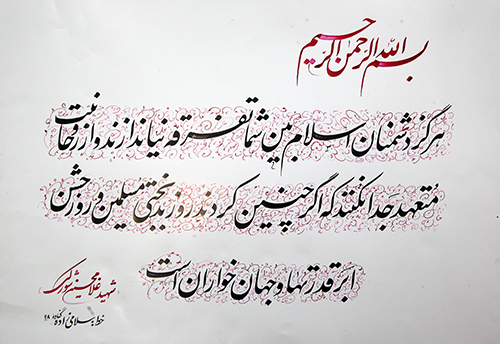 بسم الله الرحمن الرحیم
هرگز دشمنان اسلام بین شما تفرقه نیاندازند و از روحانیت
متعهد جدا نکنند که اگر چنین کردند روز بدبختی مسلمین و روز جشن
ابرقدرتها و جهان خواران است
شهید غلامحسین
خط اسلامی زاده ۹۸